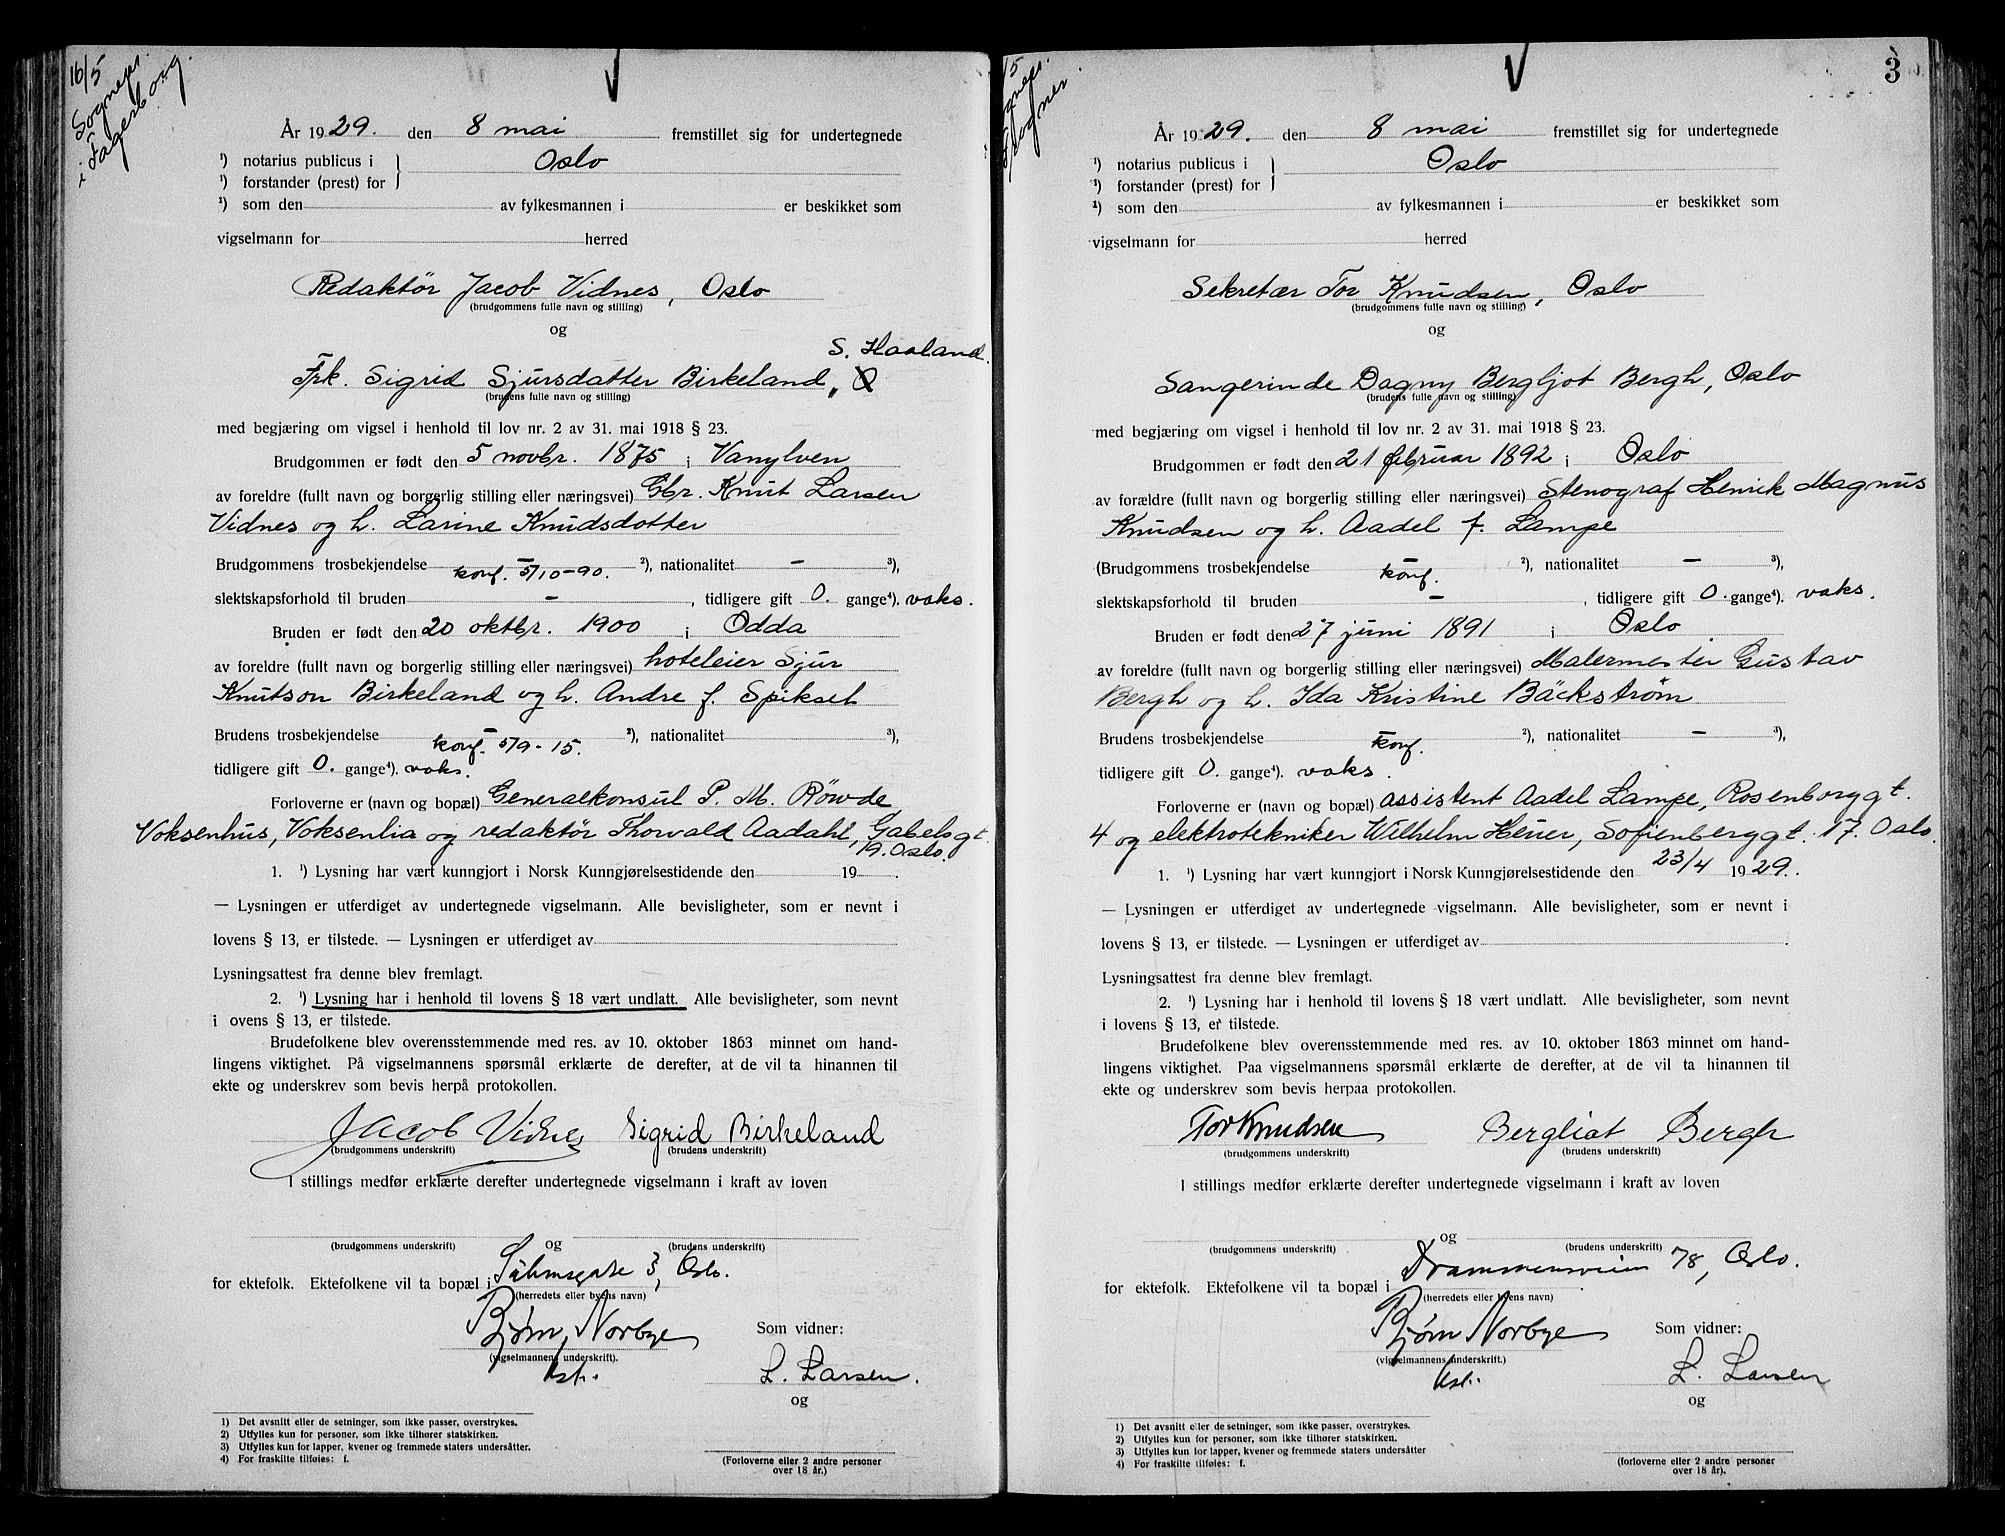 16/5
Sognepr.
i Fagerborg.
År 1929. den 8 mai fremstillet sig for undertegnede
¹) notarius publicus i } Oslo
¹) forstander (prest) for
¹) som den av fylkesmannen i er beskikket som
vigselmann for herred
Redaktør Jacob Vidnes, Oslo
(brudgommens fulle navn og stilling)
og
S. Haaland.
Frk. Sigrid Sjursdatter Birkeland,
(brudens fulle navn og stilling)
med begjæring om vigsel i henhold til lov nr. 2 av 31. mai 1918 § 23.
Brudgommen er født den 5 novbr. 1875 i Vanylven
av foreldre (fullt navn og borgerlig stilling eller næringsvei) Gbr. Knut Larsen
Vidnes og h. Larine Knudsdotter
Brudgommens trosbekjendelse – konf. 5/10-90. ²), nationalitet – ³),
slektskapsforhold til bruden – , tidligere gift 0. gange⁴). vaks.
Bruden er født den 20 oktbr. 1900 i Odda
av foreldre (fullt navn og borgerlig stilling eller næringsvei) hoteleier Sjur
Knutson Birkeland og h. Andre f. Spikset
Brudens trosbekjendelse – konf. 5/9-15. ²), nationalitet – ³),
tidligere gift 0. gange⁴). vaks.
Forloverne er (navn og bopæl) Generalkonsul P. M. Röwde
Voksenhus, Voksenlia og redaktør Thorvald Aadahl, Gabelsgt.
19. Oslo.
1. ¹) Lysning har vært kunngjort i Norsk Kunngjørelsestidende den 19 .
— Lysningen er utferdiget av undertegnede vigselmann. Alle bevisligheter, som er nevnt i
lovens § 13, er tilstede. — Lysningen er utferdiget av
Lysningsattest fra denne blev fremlagt.
2. ¹) Lysning har i henhold til lovens § 18 vært undlatt. Alle bevisligheter, som nevnt
i ovens § 13, er tilstede.
Brudefolkene blev overensstemmende med res. av 10. oktober 1863 minnet om hand-
lingens viktighet. På vigselmannens spørsmål erklærte de derefter, at de vil ta hinannen til
ekte og underskrev som bevis herpå protokollen.
Jacob Vidnes Sigrid Birkeland
(brudgommens underskrift) (brudens underskrift)
I stillings medfør erklærte derefter undertegnede vigselmann i kraft av loven
og
(brudgommens underskrift) (brudens underskrift)
for ektefolk. Ektefolkene vil ta bopæl i Suhmsgate 3, Oslo.
(herredets eller byens navn)
Bjørn Norbye Som vidner:
(vigselmannens underskrift).
L. Larsen.
og
1) Det avsnitt eller de setninger, som ikke passer, overstrykes.
2) Utfylles kun for personer, som ikke tilhører statskirken.
3) Utfylles kun for lapper, kvener og fremmede staters undersåtter.
4) For fraskilte tilføies: f.
(Forloverne eller 2 andre personer
over 18 år.)
3
År 1929. den 8 mai fremstillet sig for undertegnede
¹) notarius publicus i } Oslo
¹) forstander (prest) for
¹) som den av fylkesmannen i er beskikket som
vigselmann for herred
Sekretær Tor Knudsen, Oslo
(brudgommens fulle navn og stilling)
og
Sangerinde Dagny Bergljot Bergh, Oslo
(brudens fulle navn og stilling)
med begjæring om vigsel i henhold til lov nr. 2 av 31. mai 1918 § 23.
Brudgommen er født den 21 februar 1892 i Oslo
av forældre (fullt navn og borgerlig stilling eller næringsvei) Stenograf Henrik Magnus
Knudsen og h. Aadel f. Lampe
(Brudgommens trosbekjendelse – konf. ²), nationalitet – ³),
slektskapsforhold til bruden – , tidligere gift 0. gange⁴). vaks.
Bruden er født den 27 juni 1891 i Oslo
av foreldre (fullt navn og borgerlig stilling eller næringsvei) Malermester Gustav
Bergh og h. Ida Kristine Bäckstrøm
Brudens trosbekjendelse – konf. ²), nationalitet – ³),
tidligere gift 0. gange⁴). vaks.
Forloverne er (navn og bopæl) assistent Aadel Lampe, Rosenborggt.
4 og elektrotekniker Wilhelm Heuer, Sofienberggt. 17. Oslo.
1. ¹) Lysning har vært kunngjort i Norsk Kunngjørelsestidende den 23/4 1929.
— Lysningen er utferdiget av undertegnede vigselmann. Alle bevisligheter, som er nevnt i
lovens § 13, er tilstede. — Lysningen er utferdiget av .
Lysningsattest fra denne blev fremlagt.
2. ¹) Lysning har i henhold til lovens § 18 vært undlatt. Alle bevisligheter, som nevnt
i lovens § 13, er tilstede.
Brudefolkene blev overensstemmende med res. av 10. oktober 1863 minnet om hand-
lingens viktighet. Paa vigselmannens spørsmål erklærte de derefter, at de vil ta hinannen til
ekte og underskrev som bevis herpaa protokollen.
Tor Knudsen Bergliot Bergh
(brudgommens underskrift) (brudens underskrift)
I stillings medfør erklærte derefter undertegnede vigselmann i kraft av loven
og
(brudgommens underskrift) (brudens underskrift)
for ektefolk. Ektefolkene vil ta bopæl i Drammensveien 78, Oslo.
(herredets eller byens navn)
Bjørn Norbye Som vidner:
(vigselmannens underskrift.)
L. Larsen
og
1) Det avsnitt eller de setninger, som ikke passer, overstrykes.
2) Utfylles kun for personer, som ikke tilhører statskirken.
3) Utfylles kun for lapper, kvener og fremmede staters undersåtter
4) For fraskilte tilføies: f.
(forloverne eller 2 andre personer
over 18 år.)